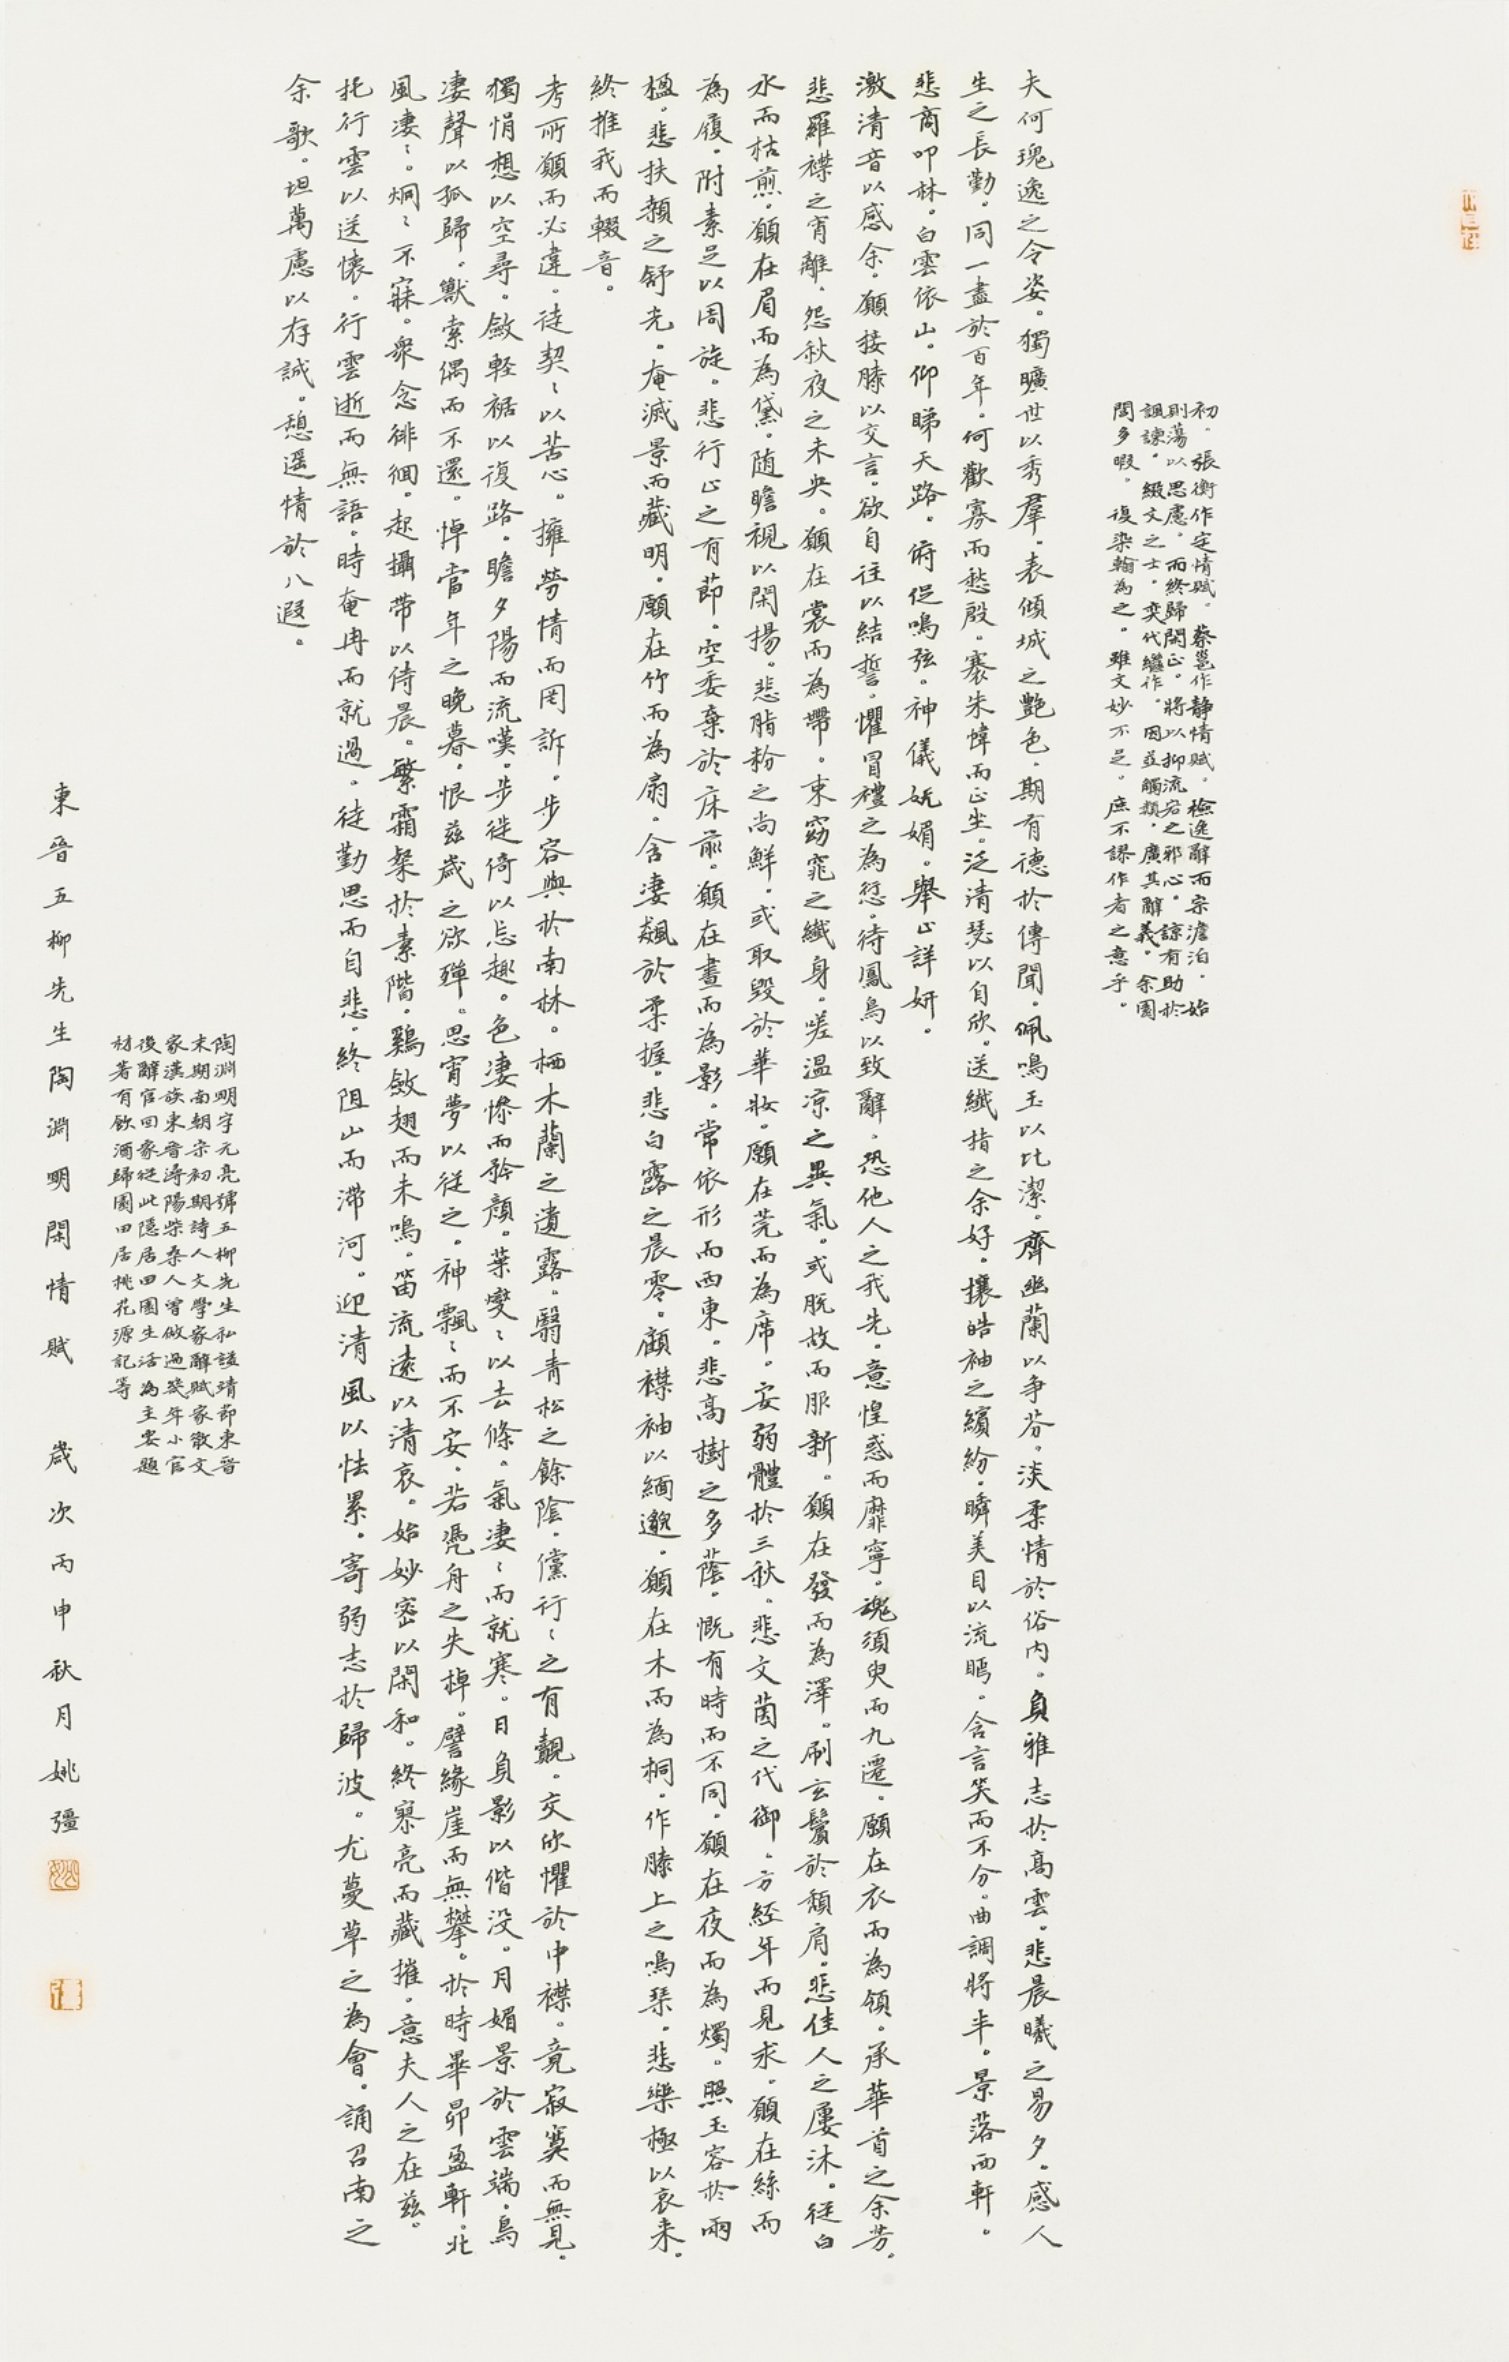 初。張衡作定情賦。蔡邕作静情賦。檢逸辭而宗澹泊。始
則蕩以思慮。而終歸閑正。將以抑流宕之邪心。諒有助於
諷諫。綴文之士。奕代繼作。因並觸類。廣其辭義。余園
閭多暇。復染翰為之。雖文妙不足。庶不謬作者之意乎。
夫何瑰逸之令姿。獨曠世以秀羣。表傾城之艷色。期有德於傳聞。佩鳴玉以比潔。齊幽蘭以争芬。淡柔情於俗内。負雅志於高雲。悲晨曦之易夕。感人
生之長勤。同一盡於百年。何歡寡而愁殷。褰朱幃而正坐。泛清瑟以自欣。送纖指之余好。攘皓袖之繽紛。瞬美目以流眄。含言笑而不分。曲調將半。景落西軒。
悲商叩林。白雲依山。仰睇天路。俯促鳴弦。神儀妩媚。舉止詳妍。
激清音以感余。願接膝以交言。欲自往以結誓。懼冒禮之為愆。待鳳鳥以致辭。恐他人之我先。意惶惑而靡寧。魂須臾而九遷。願在衣而為領。承華首之余芳。
悲羅襟之宵離。怨秋夜之未央。願在裳而為帶。束窈窕之纖身。嗟温凉之異氣。或脱故而服新。願在發而為澤。刷玄鬢於頹肩。悲佳人之屢沐。從白
水而枯煎。願在眉而為黛。随瞻視以閑揚。悲脂粉之尚鮮。或取毁於華妝。願在莞而為席。安弱體於三秋。悲文茵之代御。方經年而見求。願在絲而
為履。附素足以周旋。悲行止之有節。空委棄於床前。願在晝而為影。常依形而西東。悲高樹之多蔭。慨有時而不同。願在夜而為燭。照玉容於兩
楹。悲扶桑之舒光。奄滅景而藏明。願在竹而為扇。含凄飆於柔握。悲白露之晨零。顧襟袖以緬邈。願在木而為桐。作膝上之鳴琴。悲樂極以哀来。
終推我而輟音。
考所願而必違。徒契〻以苦心。擁勞情而罔訴。步容與於南林。栖木蘭之遺露。翳青松之餘陰。儻行〻之有覿。交欣懼於中襟。竟寂寞而無見。
獨悁想以空尋。斂軽裾以復路。瞻夕陽而流嘆。步徙倚以忘趣。色凄慘而矜顏。葉燮〻以去條。氣凄〻而就寒。日負影以偕没。月媚景於雲端。鳥
凄聲以孤歸。獸索偶而不還。悼當年之晚暮。恨兹歲之欲殫。思宵夢以從之。神飄〻而不安。若凴舟之失棹。譬緣崖而無攀。於時畢昴盈軒。北
風凄〻。炯〻不寐。衆念徘徊。起攝帶以侍晨。繁霜粲於素階。鷄斂翅而未鳴。笛流遠以清哀。始妙密以閑和。終寥亮而藏摧。意夫人之在兹。
托行雲以送懷。行雲逝而無語。時奄冉而就過。徒勤思而自悲。終阻山而滯河。迎清風以怯累。寄弱志於歸波。尤蔓草之為會。誦召南之
余歌。坦萬慮以存誠。憩遥情於八遐。
陶淵明字元亮號五柳先生私謚靖節東晉
末期南朝宋初期詩人文學家辭賦家散文
家漢族東晉潯陽柴桑人曾做過幾年小官
後辭官回家從此隱居田園生活為主要題
材著有飲酒歸園田居桃花源記等
東晉五柳先生陶淵明閑情賦 歲次丙申秋月姚彊